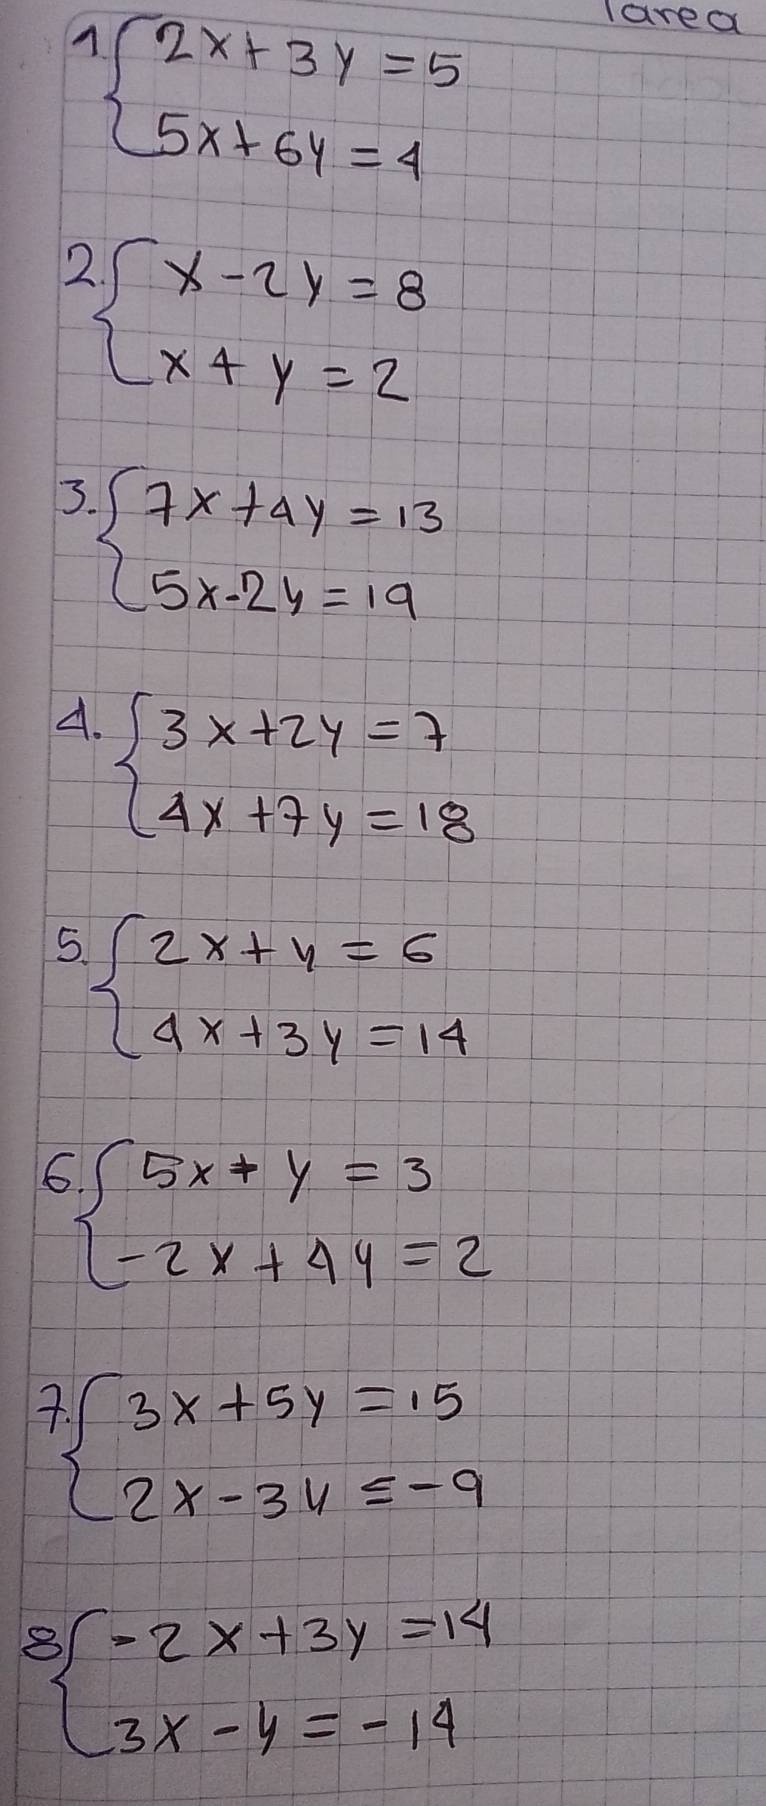 Tarea
1. 2x + 3y = 5
5x + 6y = 4
2. x - 2y = 8
x + y = 2
3. 7x + 4y = 13
5x - 2y = 19
4. 3x + 2y = 7
4x + 7y = 18
5. 2x + y = 6
4x + 3y = 14
6. 5x + y = 3
-2x + 4y = 2
7. 3x + 5y = 15
2x - 3y = -9
8 -2x + 3y = 14
3x - y = -14